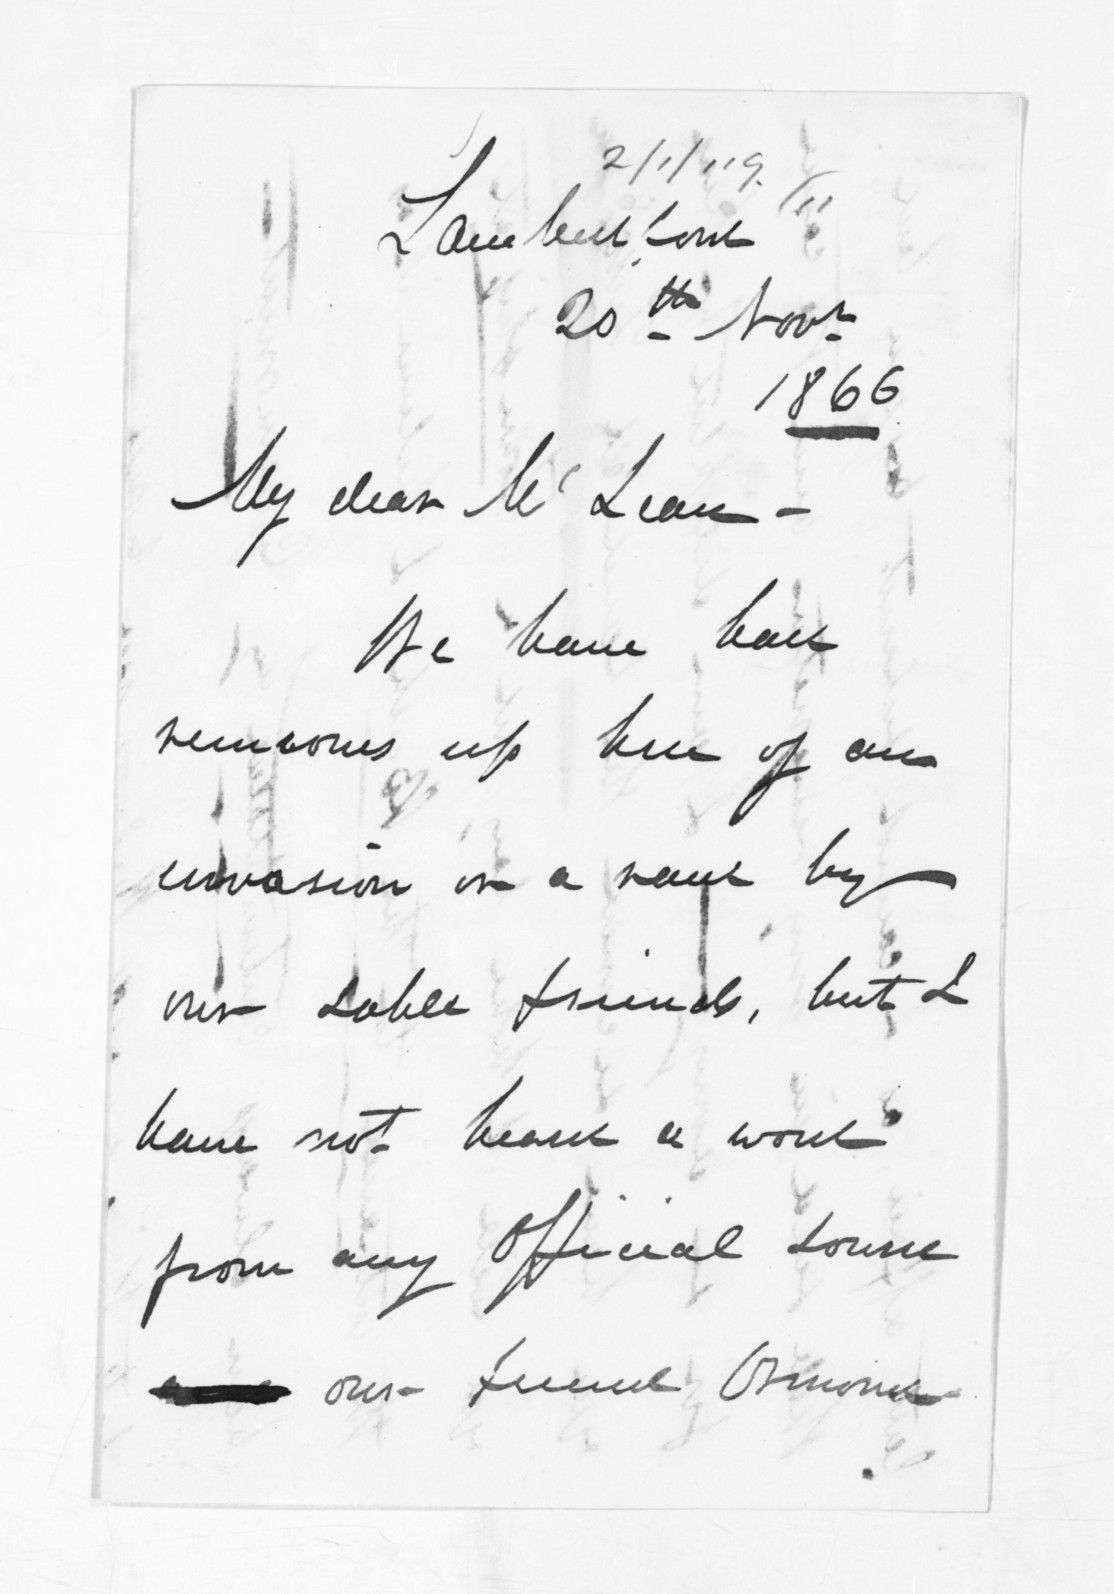 2/1/119.
Lambertford
20th Novr
1866
My dear McLean -
We have had
rumours up here of an
invasion or a raid by
our sable friends, but I
have not heard a word
from any Official source
our friend Ormond